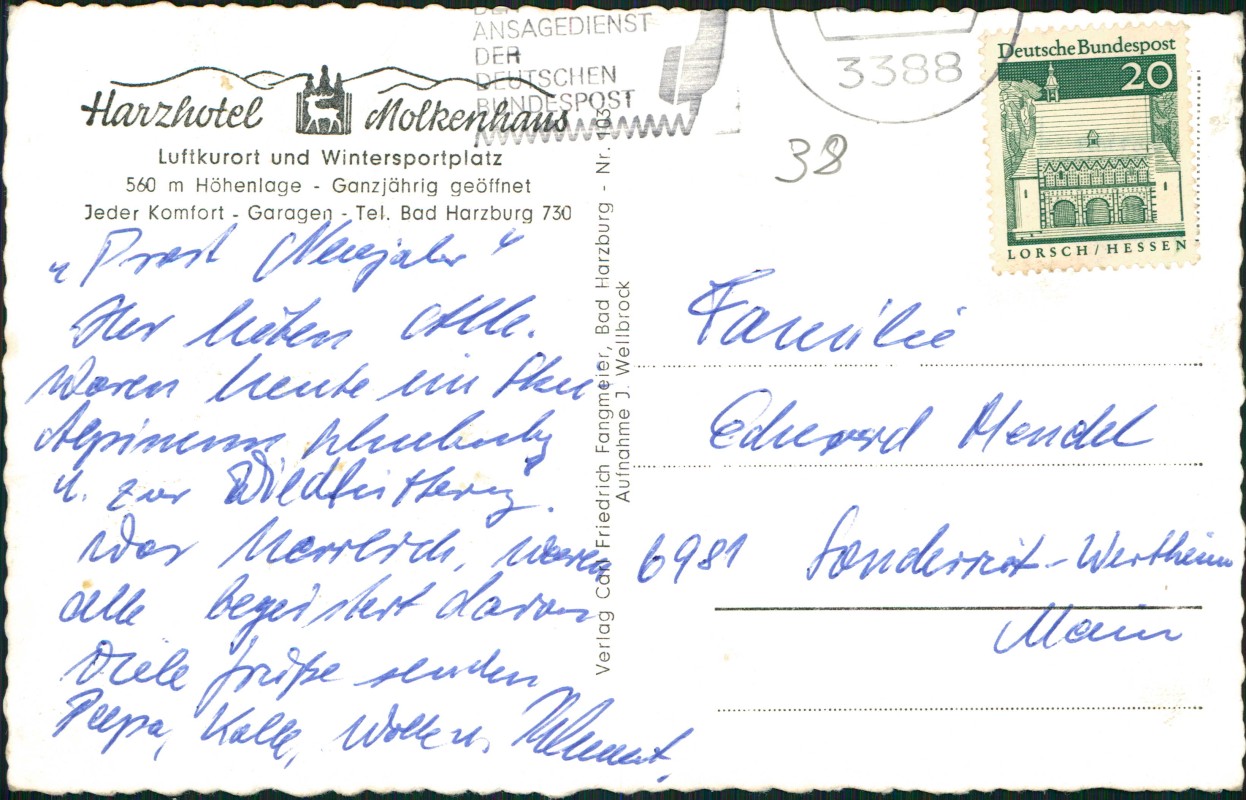 ANSAGEDIENST
DER
DEUTSCHEN
BUNDESPOST
3388
Deutsche Bundespost
20
LORSCH/HESSEN
38
Harzhotel Molkenhaus
Luftkurort und Wintersportplatz
560 m Höhenlage - Ganzjährig geöffnet
Jeder Komfort - Garagen - Tel. Bad Harzburg 730
„Prost Neujahr"
Ihr lieben Alle.
Waren heute im
Alpinum
u. zur Wildfütterung.
War herrlich, waren
alle begeistert davon
Viele Grüße senden
Peepa, Kalle,
Verlag Carl Friedrich Fangmeier, Bad Harzburg - Nr.
Aufnahme J. Wellbrock
Familie
Eduard Mendel
6981 Sonderriet-Wertheim
Main